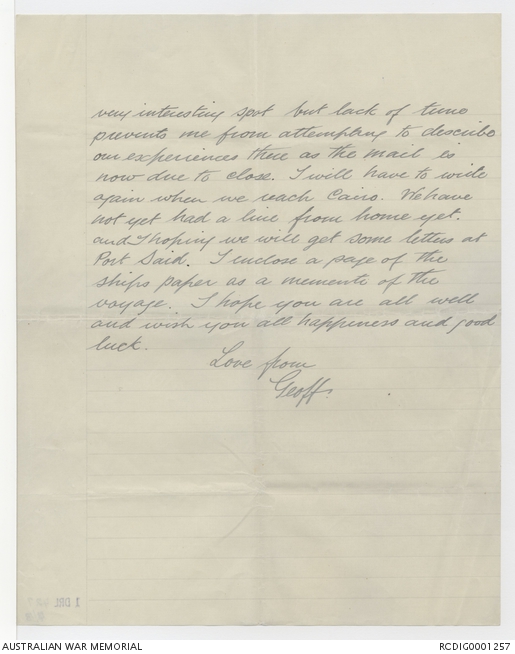 very interesting spot but lack of time
prevents me from attempting to describe
our experiences there as the mail is
now due to close. I will have to write
again when we reach Cairo. We have
not yet had a line from home yet.
and I hoping we will get some letters at
Port Said. I enclose a page of the
ships paper as a memento of the
voyage. I hope you are all well
and wish you all happiness and good
luck.
Love from
Geoff.
1 DRL
AUSTRALIAN WAR MEMORIAL
RCDIG0001257